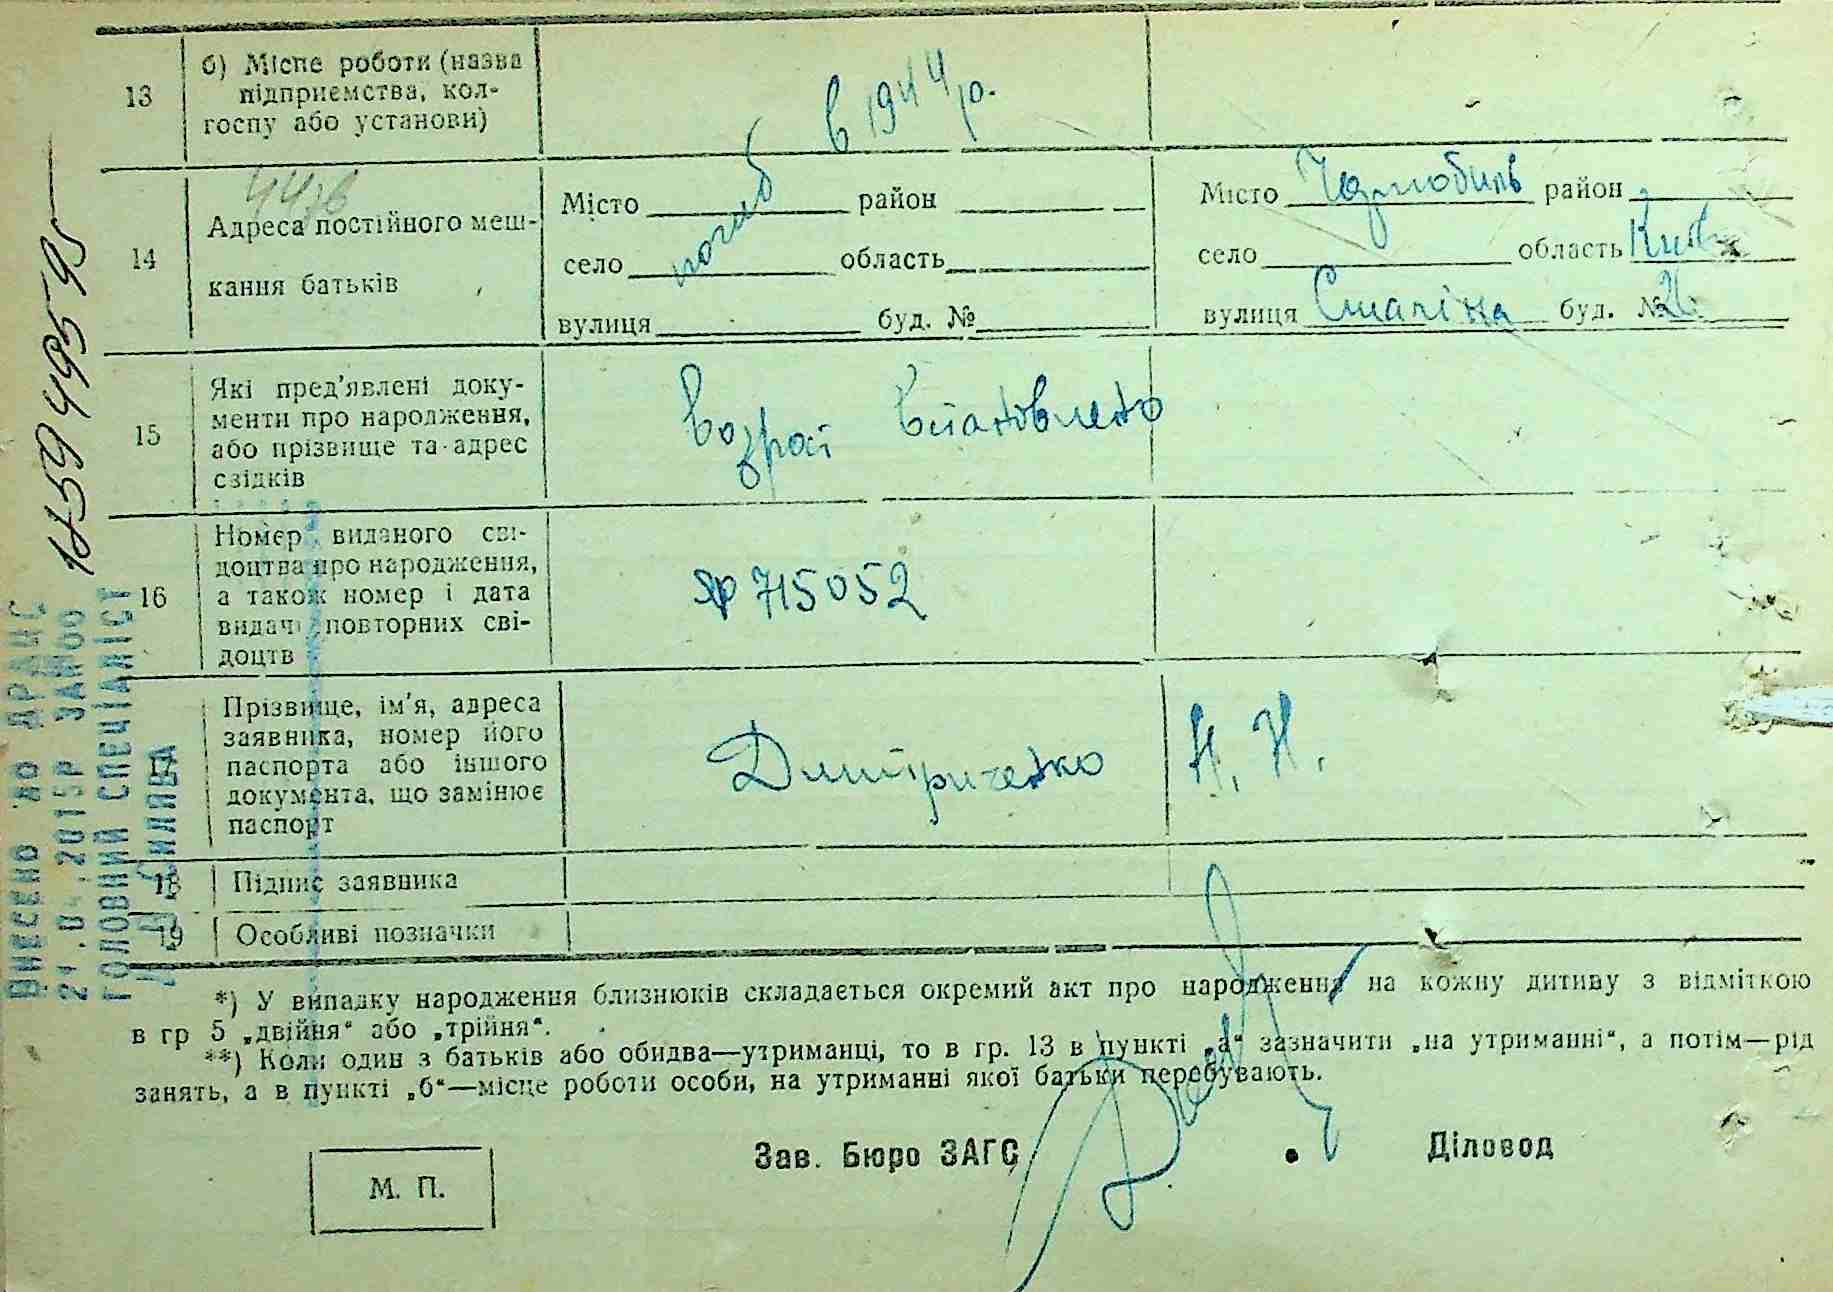 13
б) Місце роботи (назва
підприємства, кол-
госпу або установи)
в 1944 р.
14
Адреса постійного меш-
кання батьків
погиб
Місто район
село область
вулиця буд. №
Місто Чернобиль район
село область Київ
вулиця Сталіна буд. № 26
15
Які пред'явлені доку-
менти про народження,
або прізвище та адрес
свідків
Возраст встановлено
16
Номер виданого сві-
доцтва про народження,
а також номер і дата
видачі повторних сві-
доцтв
715052
17
Прізвище, ім'я, адреса
заявника, номер його
паспорта або іншого
документа, що замінює
паспорт
Дмитриченко Н. Н.
18
Підпис заявника
19
Особливі позначки
*) У випадку народження близнюків складається окремий акт про народження на кожну дитину з відміткою
в гр 5 „двійня“ або „трійня“.
**) Коли один з батьків або обидва—утриманці, то в гр. 13 в пункті „а“ зазначити „на утриманні“, а потім—рід
занять, а в пункті „б“—місце роботи особи, на утриманні якої батьки перебувають.
Зав. Бюро ЗАГС
Діловод
М. П.
ВНЕСЕНО ДО ДРАЦС
2015Р
ГОЛОВНИЙ СПЕЦІАЛІСТ